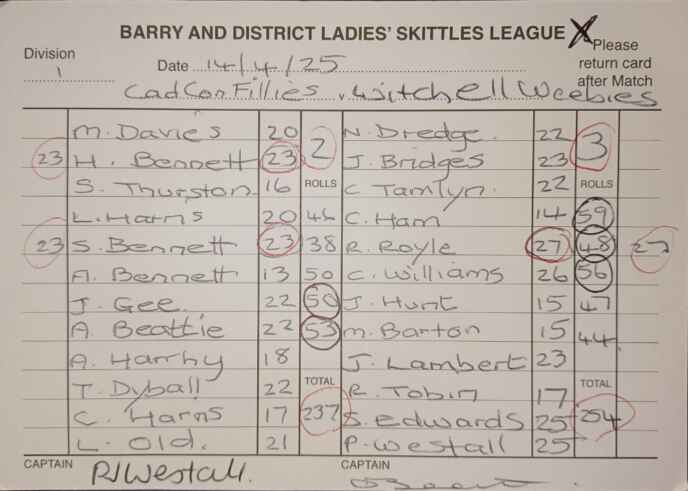 BARRY AND DISTRICT LADIES' SKITTLES LEAGUE X
Division 1
Date 14/4/25
Please return card after Match
CadCon Fillies v Witchell Weebies
M. Davies 20 2 N. Dredge. 22 3
23 H. Bennett 23 J. Bridges 23
S. Thurston 16 ROLLS C Tamlyn. 22 ROLLS
L. Harris 20 46 C. Ham 14 59
23 S. Bennett 23 38 R. Royle 27 48 27
A. Bennett 13 50 C. Williams 26 56
J. Gee. 22 50 J. Hunt 15 47
A. Beattie 22 53 M. Barton 15 44
A. Harrhy 18 J. Lambert 23
T. Dyball 22 TOTAL R. Tobin 17 TOTAL
C. Harris 17 237 S. Edwards 25 254
L. Old. 21 P. Westall 25
CAPTAIN PJWestall. CAPTAIN